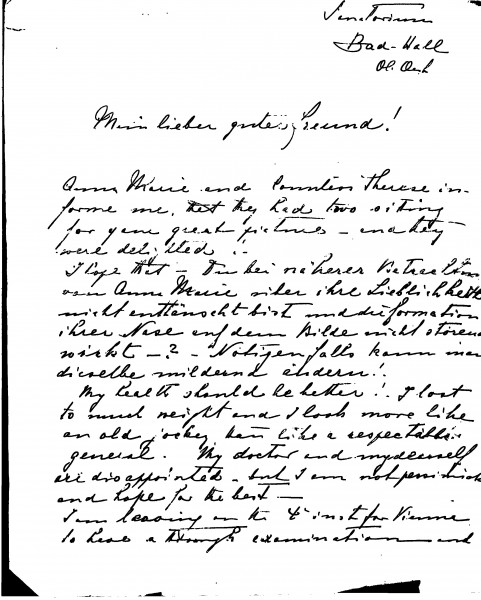 Sanatorium
Bad-Hall
Ob. Oest
Mein lieber guter Freund!
Anna Marie and Countess Therese in-
forme me, that they had two sitting
for your great pictures - and they
were delighted !-
I hope that - Du bei näherer Betrachtung
von Anna Marie über ihre Lieblichkeit
nicht enttäuscht bist und die formation
ihrer Nase auf dem Bilde nicht störend
wirkt - ? - Nötigenfalls kann man
dieselbe mildernd ändern!
My health should be better! I lost
to much weight and I look more like
an old jockey than like a respectable
general. My doctor and
are disappointed - but I am not
and hope for the best -
I am leaving on the 4th inst for Vienna
to have a through examination and